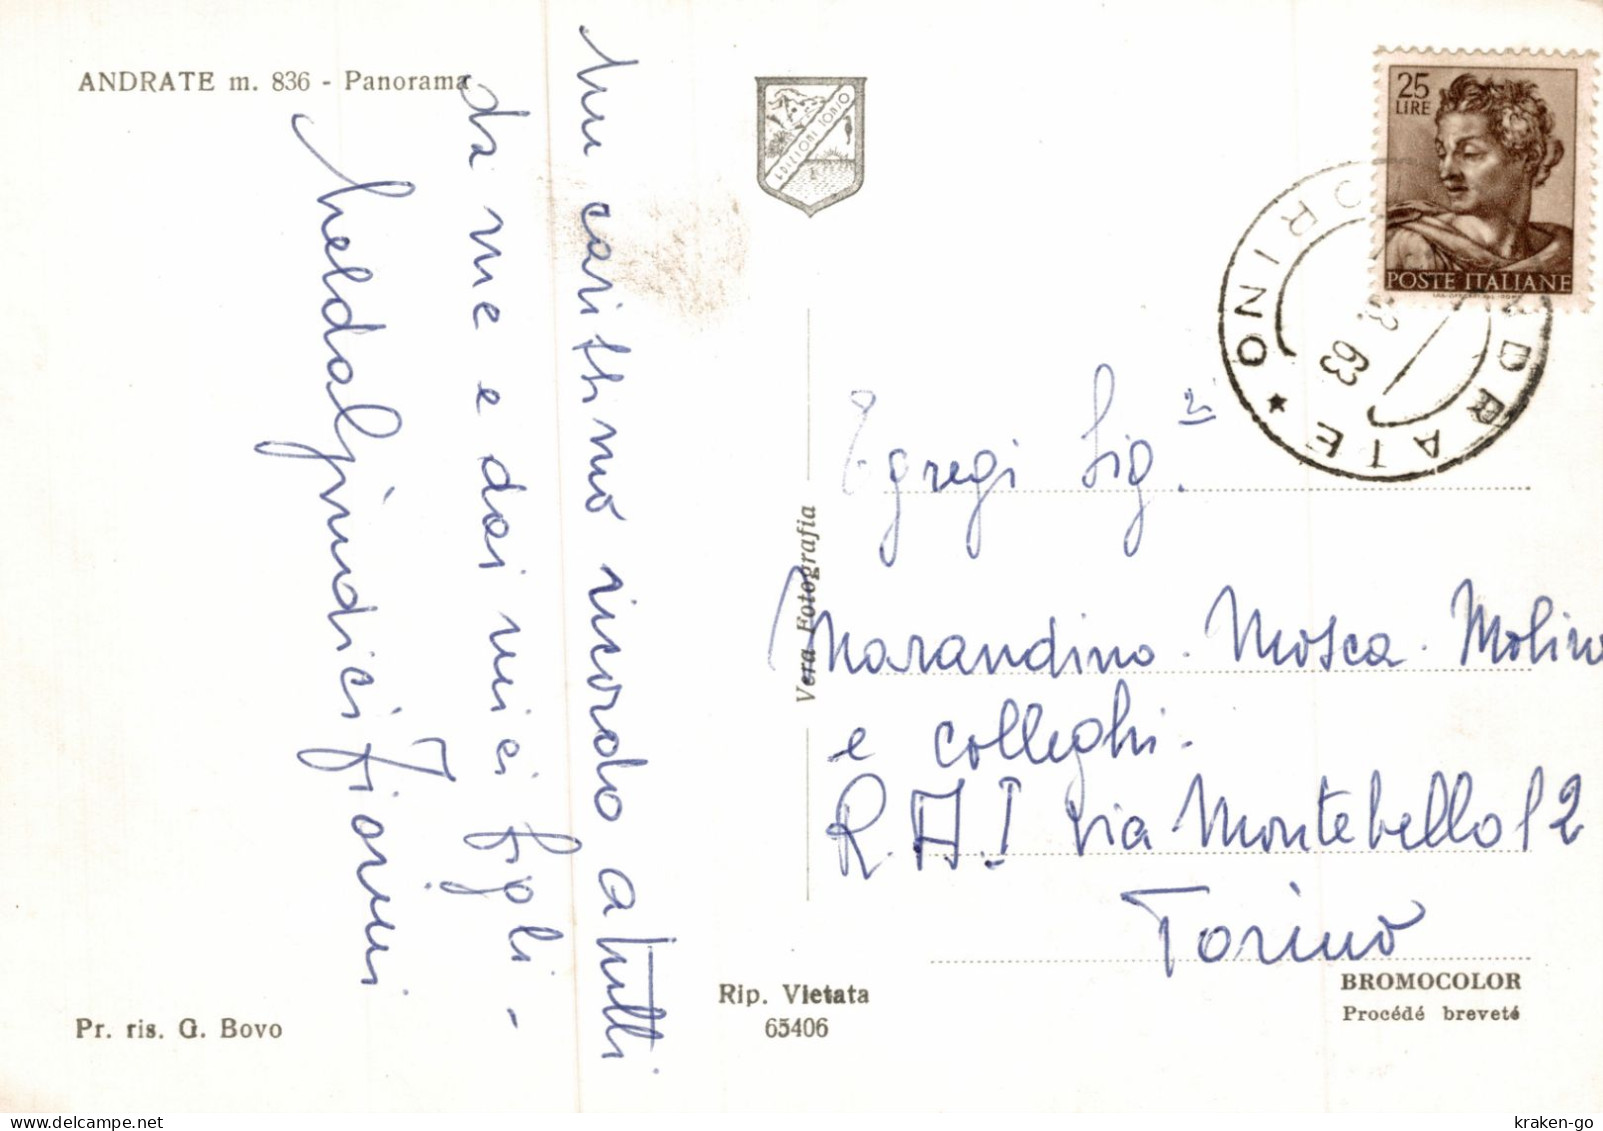 ANDRATE m. 836 - Panorama
Un carissimo ricordo a tutti
da me e dai miei figli -
EDIZIONI IORIO
25
LIRE
POSTE ITALIANE
ANDRATE ★ TORINO
63
Egregi Sig.ri
Marandino - Mosca - Molino
e colleghi -
R.A.I via Montebello 12
Torino
Vera Fotografia
Rip. Vietata
65406
BROMOCOLOR
Procédé breveté
Pr. ris. G. Bovo
kraken-go